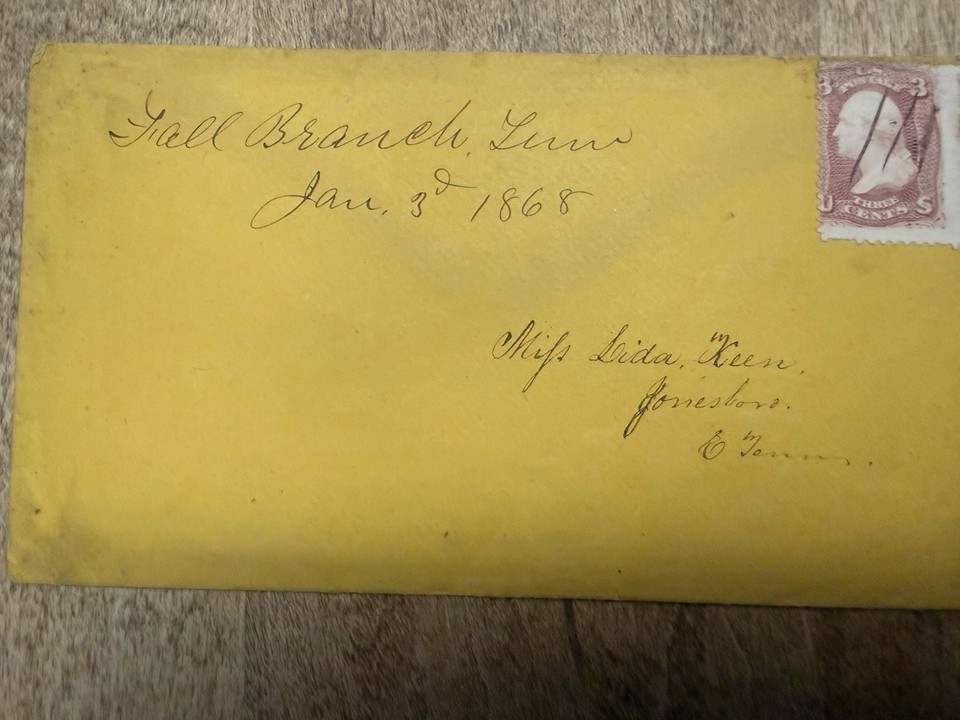 Fall Branch, Tenn
Jan. 3d 1868
3 U.S. 3
POSTAGE
THREE
U CENTS S
Miss Lida. Keen.
Jonesboro.
E Tenn.